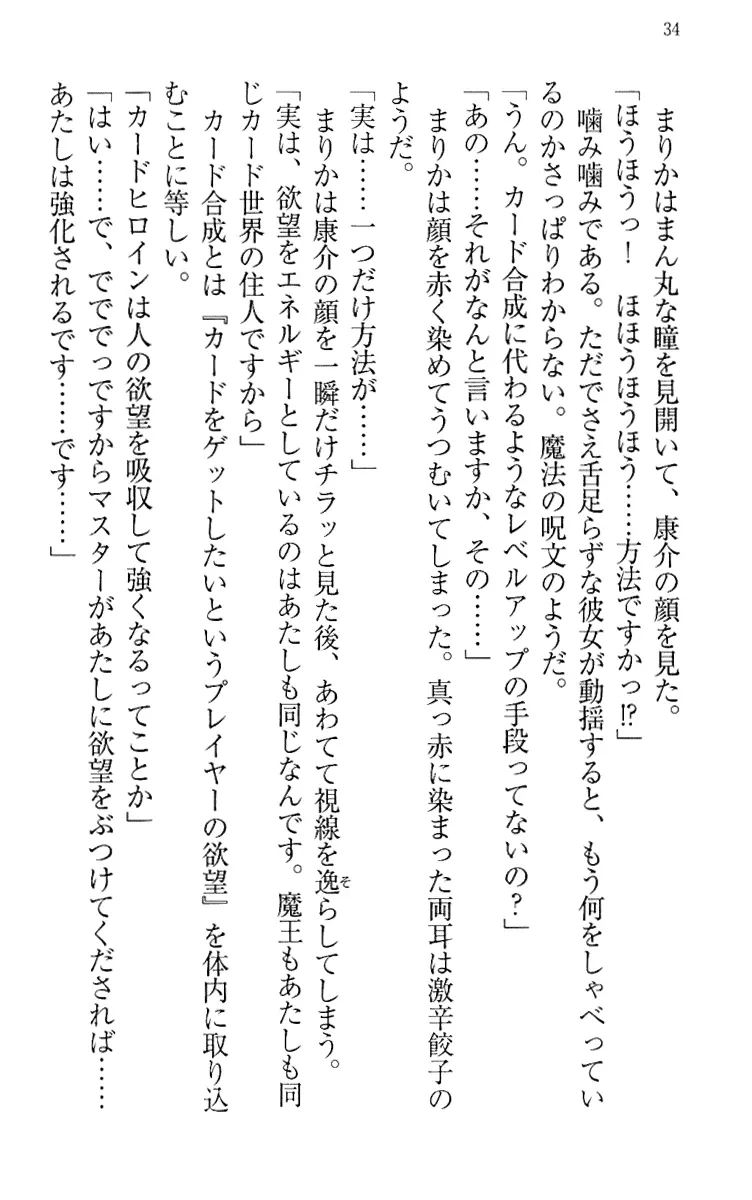 34
まりかはまん丸な瞳を見開いて、康介の顔を見た。
「ほうほうっ！　ほほうほうほう……方法ですかっ!?」
噛み噛みである。ただでさえ舌足らずな彼女が動揺すると、もう何をしゃべってい
るのかさっぱりわからない。魔法の呪文のようだ。
「うん。カード合成に代わるようなレベルアップの手段ってないの？」
「あの……それがなんと言いますか、その……」
まりかは顔を赤く染めてうつむいてしまった。真っ赤に染まった両耳は激辛餃子の
ようだ。
「実は……一つだけ方法が……」
まりかは康介の顔を一瞬だけチラッと見た後、あわてて視線を逸らしてしまう。
「実は、欲望をエネルギーとしているのはあたしも同じなんです。魔王もあたしも同
じカード世界の住人ですから」
カード合成とは『カードをゲットしたいというプレイヤーの欲望』を体内に取り込
むことに等しい。
「カードヒロインは人の欲望を吸収して強くなるってことか」
「はい……で、でででっですからマスターがあたしに欲望をぶつけてくだされば……
あたしは強化されるです……です……」